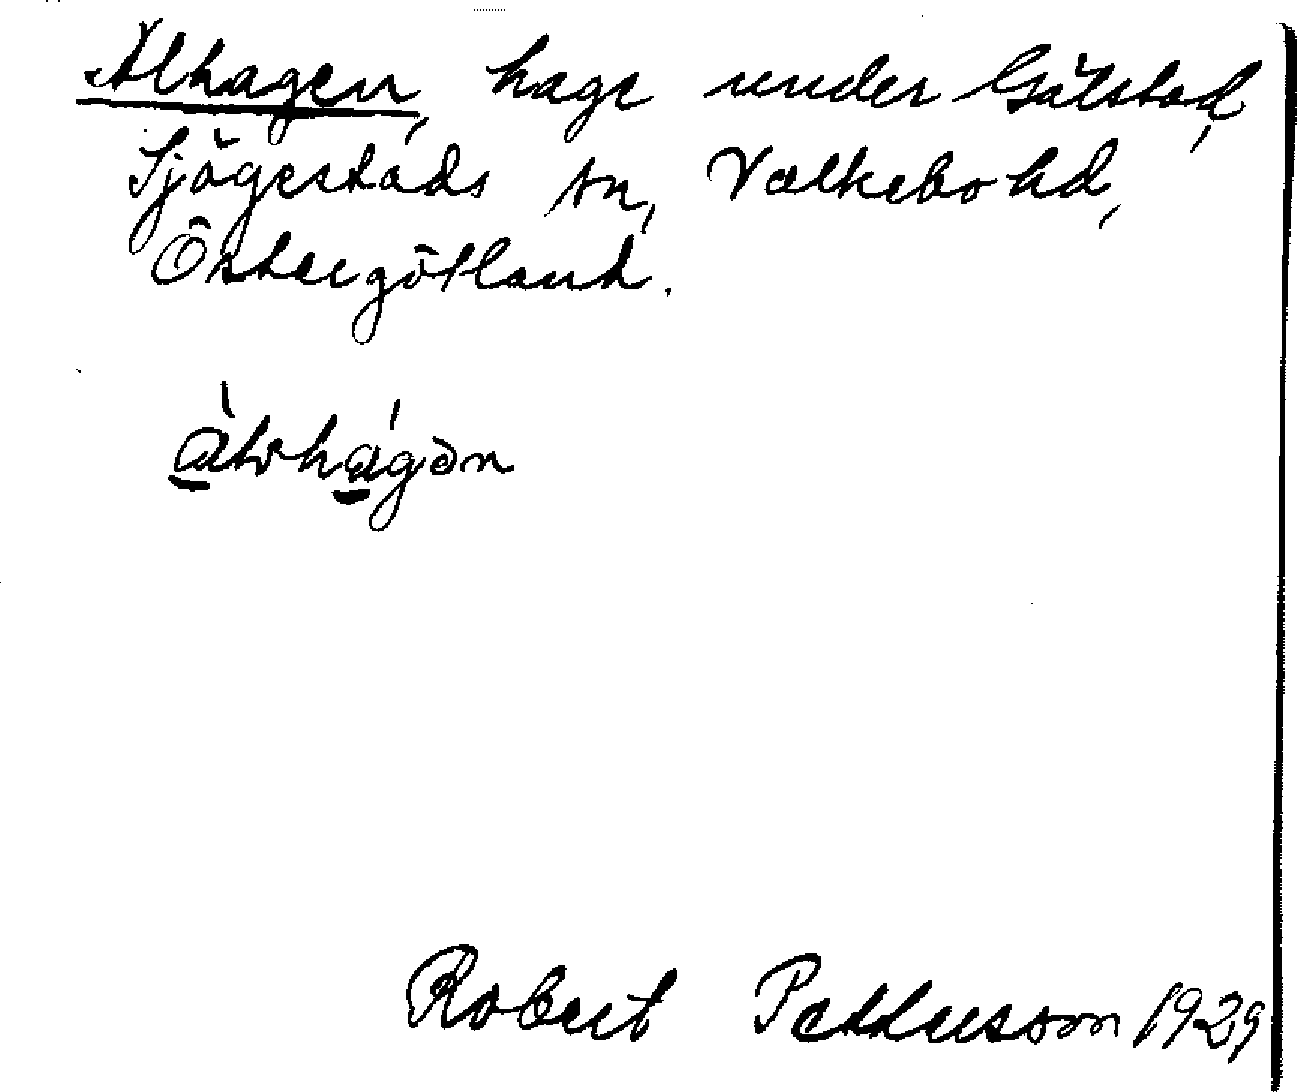 Alhagen, hage under Gälstad,
Sjögestads sn, Valkebo hd,
Östergötland.
àlvhágən
Robert Pettersson 1929